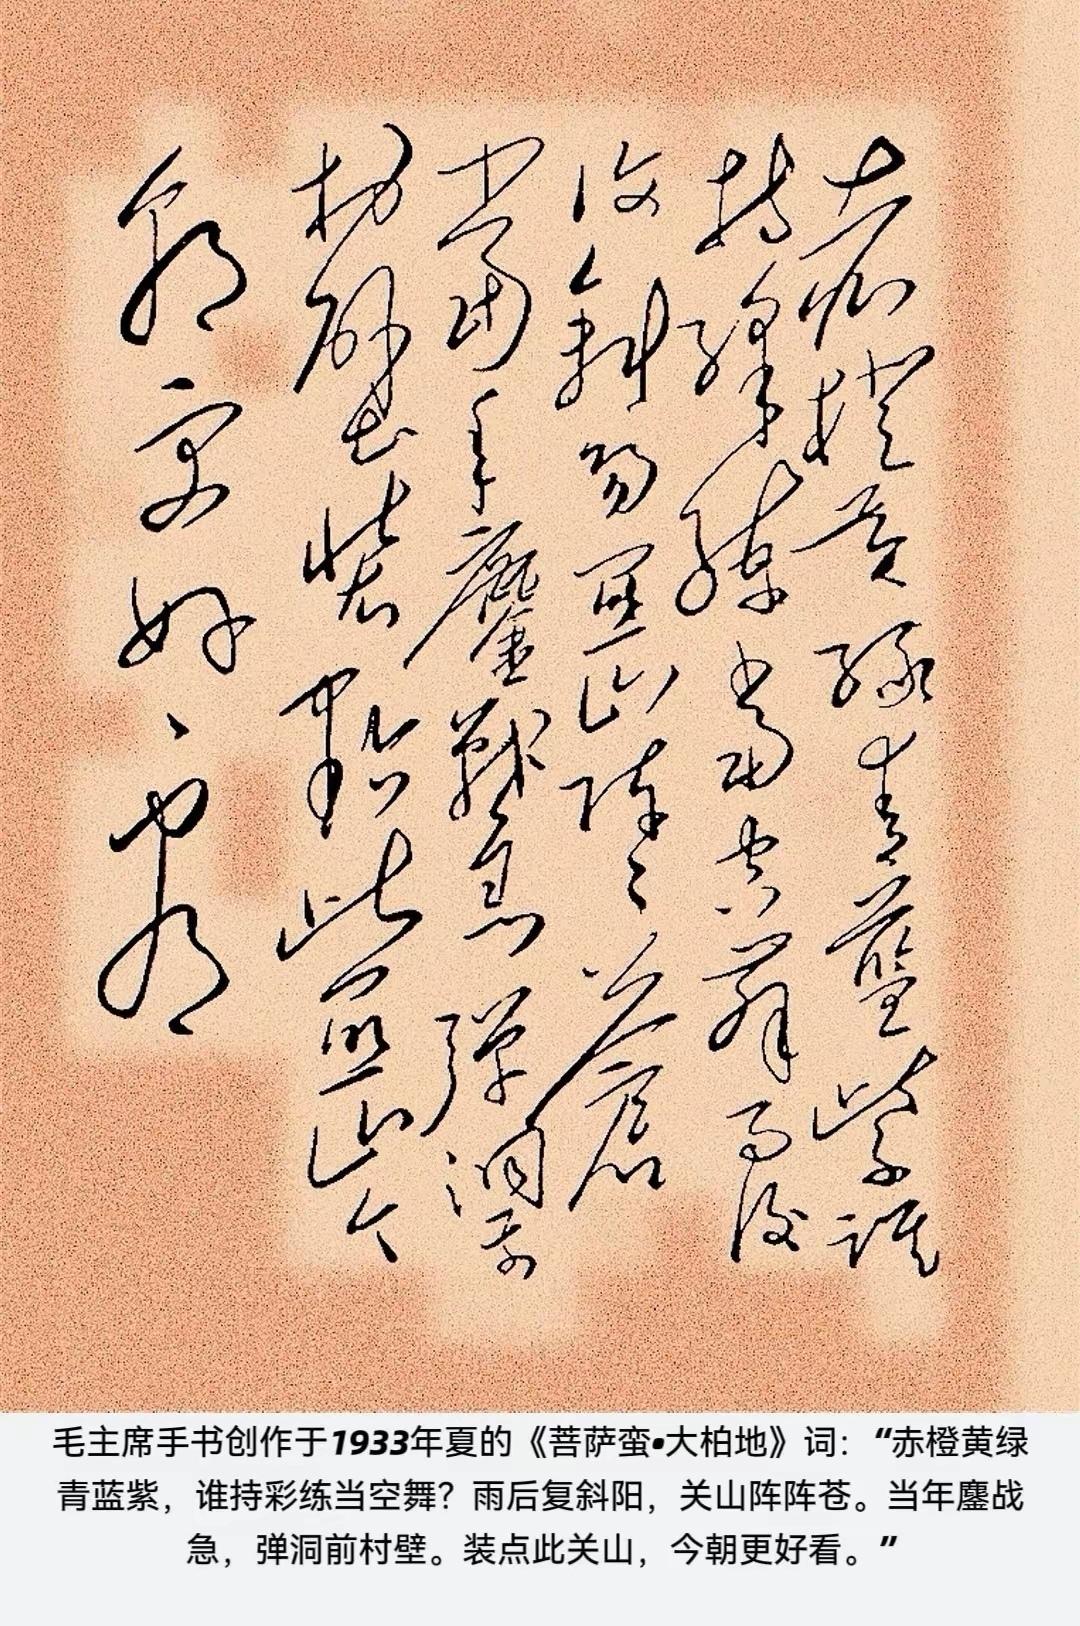 赤橙黃綠青藍紫誰
持綵練當空舞雨後
復斜陽關山陣々蒼
當年鏖戰急彈洞前
村壁裝點此關山今
朝更好看
毛主席手书创作于1933年夏的《菩萨蛮•大柏地》词：“赤橙黄绿
青蓝紫，谁持彩练当空舞？雨后复斜阳，关山阵阵苍。当年鏖战
急，弹洞前村壁。装点此关山，今朝更好看。”